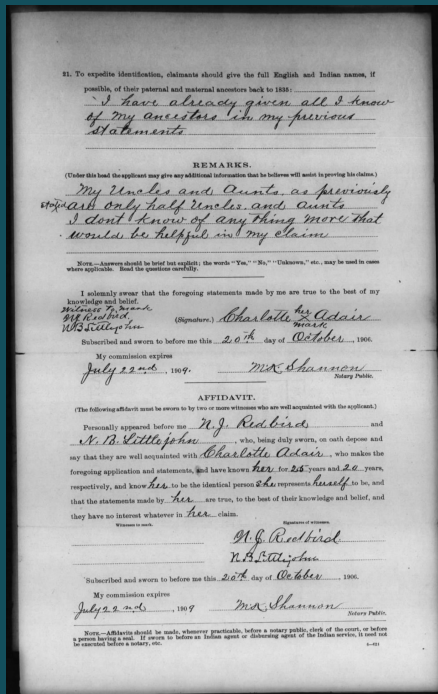 21. To expedite identification, claimants should give the full English and Indian names, if
possible, of their paternal and maternal ancestors back to 1835:
I have already given all I know
of my ancestors in my previous
statements
REMARKS.
(Under this head the applicant may give any additional information that he believes will assist in proving his claims.)
My Uncles and Aunts, as previously
stated are only half Uncles and aunts
I dont know of any thing more that
would be helpful in my claim
NOTE.—Answers should be brief but explicit; the words "Yes," "No," "Unknown," etc., may be used in cases
where applicable. Read the questions carefully.
I solemnly swear that the foregoing statements made by me are true to the best of my
knowledge and belief.
Witness to mark
N J Redbird
N B Littlejohn
(Signature.) Charlotte her x mark Adair
Subscribed and sworn to before me this 20th day of October, 1906.
My commission expires
July 22nd, 1909. MK Shannon
Notary Public.
AFFIDAVIT.
(The following affidavit must be sworn to by two or more witnesses who are well acquainted with the applicant.)
Personally appeared before me N. J. Redbird and
N. B. Littlejohn, who, being duly sworn, on oath depose and
say that they are well acquainted with Charlotte Adair, who makes the
foregoing application and statements, and have known her for 25 years and 20 years,
respectively, and know her to be the identical person she represents herself to be, and
that the statements made by her are true, to the best of their knowledge and belief, and
they have no interest whatever in her claim.
Witnesses to mark. Signatures of witnesses.
N. J. Redbird
N B Littlejohn
Subscribed and sworn to before me this 20th day of October, 1906.
My commission expires
July 22nd, 1909 MK Shannon
Notary Public.
NOTE.—Affidavits should be made, whenever practicable, before a notary public, clerk of the court, or before
a person having a seal. If sworn to before an Indian agent or disbursing agent of the Indian service, it need not
be executed before a notary, etc.